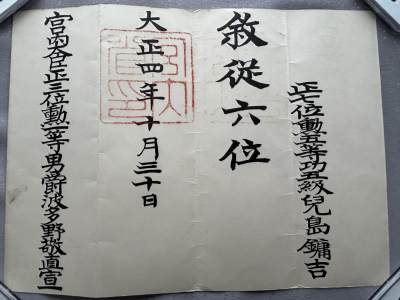 正七位勲五等功五級兒島鏞吉
敘從六位
大正四年十月三十日
宮內大臣正三位勲一等男爵波多野敬直宣